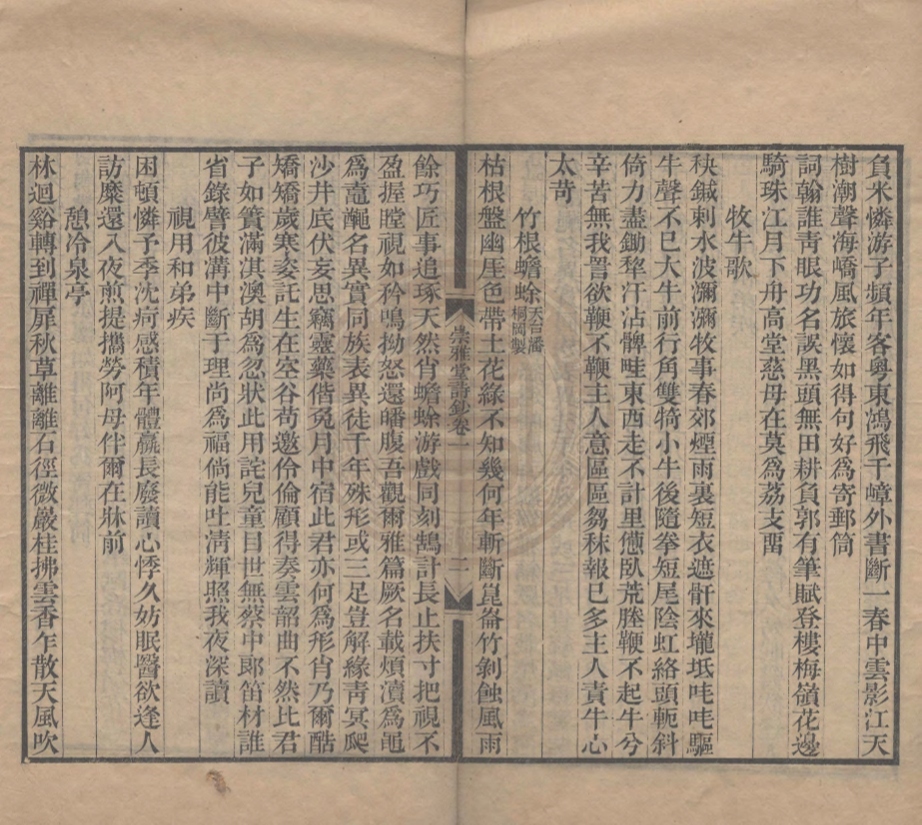 負米憐游子頻年客粵東鴻飛千嶂外書斷一春中雲影江天
樹潮聲海嶠風旅懷如得句好爲寄郵筒
詞翰誰靑眼功名誤黑頭無田耕負郭有筆賦登樓梅嶺花邊
騎珠江月下舟高堂慈母在莫爲荔支畱
牧牛歌
秧鍼刺水波瀰瀰牧事春郊煙雨裏短衣遮骭來壠坻吽吽驅
牛聲不已大牛前行角雙犄小牛後隨拳短尾陰虹絡頭軛斜
倚力盡鋤犂汗沾髀畦東西走不計里憊臥荒塍鞭不起牛兮
辛苦無我詈欲鞭不鞭主人意區區芻秣報已多主人責牛心
太苛
竹根蟾蜍天台潘桐岡製
枯根盤幽厓色帶土花綠不知幾何年斬斷崑崙竹剝蝕風雨
崇雅堂詩鈔卷一
二
餘巧匠事追琢天然肖蟾蜍游戲同刻鵠計長止扶寸把視不
盈握瞠視如矜鳴拗怒還皤腹吾觀爾雅篇厥名載煩瀆爲黽
爲鼀䵷名異實同族表異徒千年殊形或三足豈解緣靑冥爬
沙井底伏妄思竊靈藥偕兔月中宿此君亦何爲形肖乃爾酷
矯矯歲寒姿託生在空谷苟邀伶倫顧得奏雲韶曲不然比君
子如簀滿淇澳胡爲忽狀此用詫兒童目世無蔡中郞笛材誰
省錄譬彼溝中斷于理尚爲福倘能吐淸輝照我夜深讀
視用和弟疾
困頓憐予季沈疴感積年體羸長廢讀心悸久妨眠醫欲逢人
訪糜還入夜煎提攜勞阿母伴爾在牀前
憩冷泉亭
林迴谿轉到禪扉秋草離離石徑微巖桂拂雲香乍散天風吹